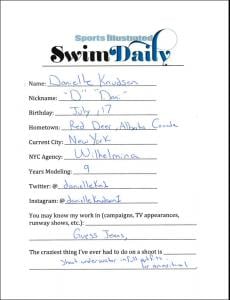 Sports Illustrated
Swim Daily
Name: Danielle Knudson
Nickname: "D" "Dani"
Birthday: July, 17
Hometown: Red Deer, Alberta Canada
Current City: New York
NYC Agency: Wilhelmina
Years Modeling: 9
Twitter: @ danielleKn1
Instagram: @ danielleknudson1
You may know my work in (campaigns, TV appearances,
runway shows, etc.):
Guess Jeans,
The craziest thing I've ever had to do on a shoot is
shoot underwater in full outfit to
be a mermaid